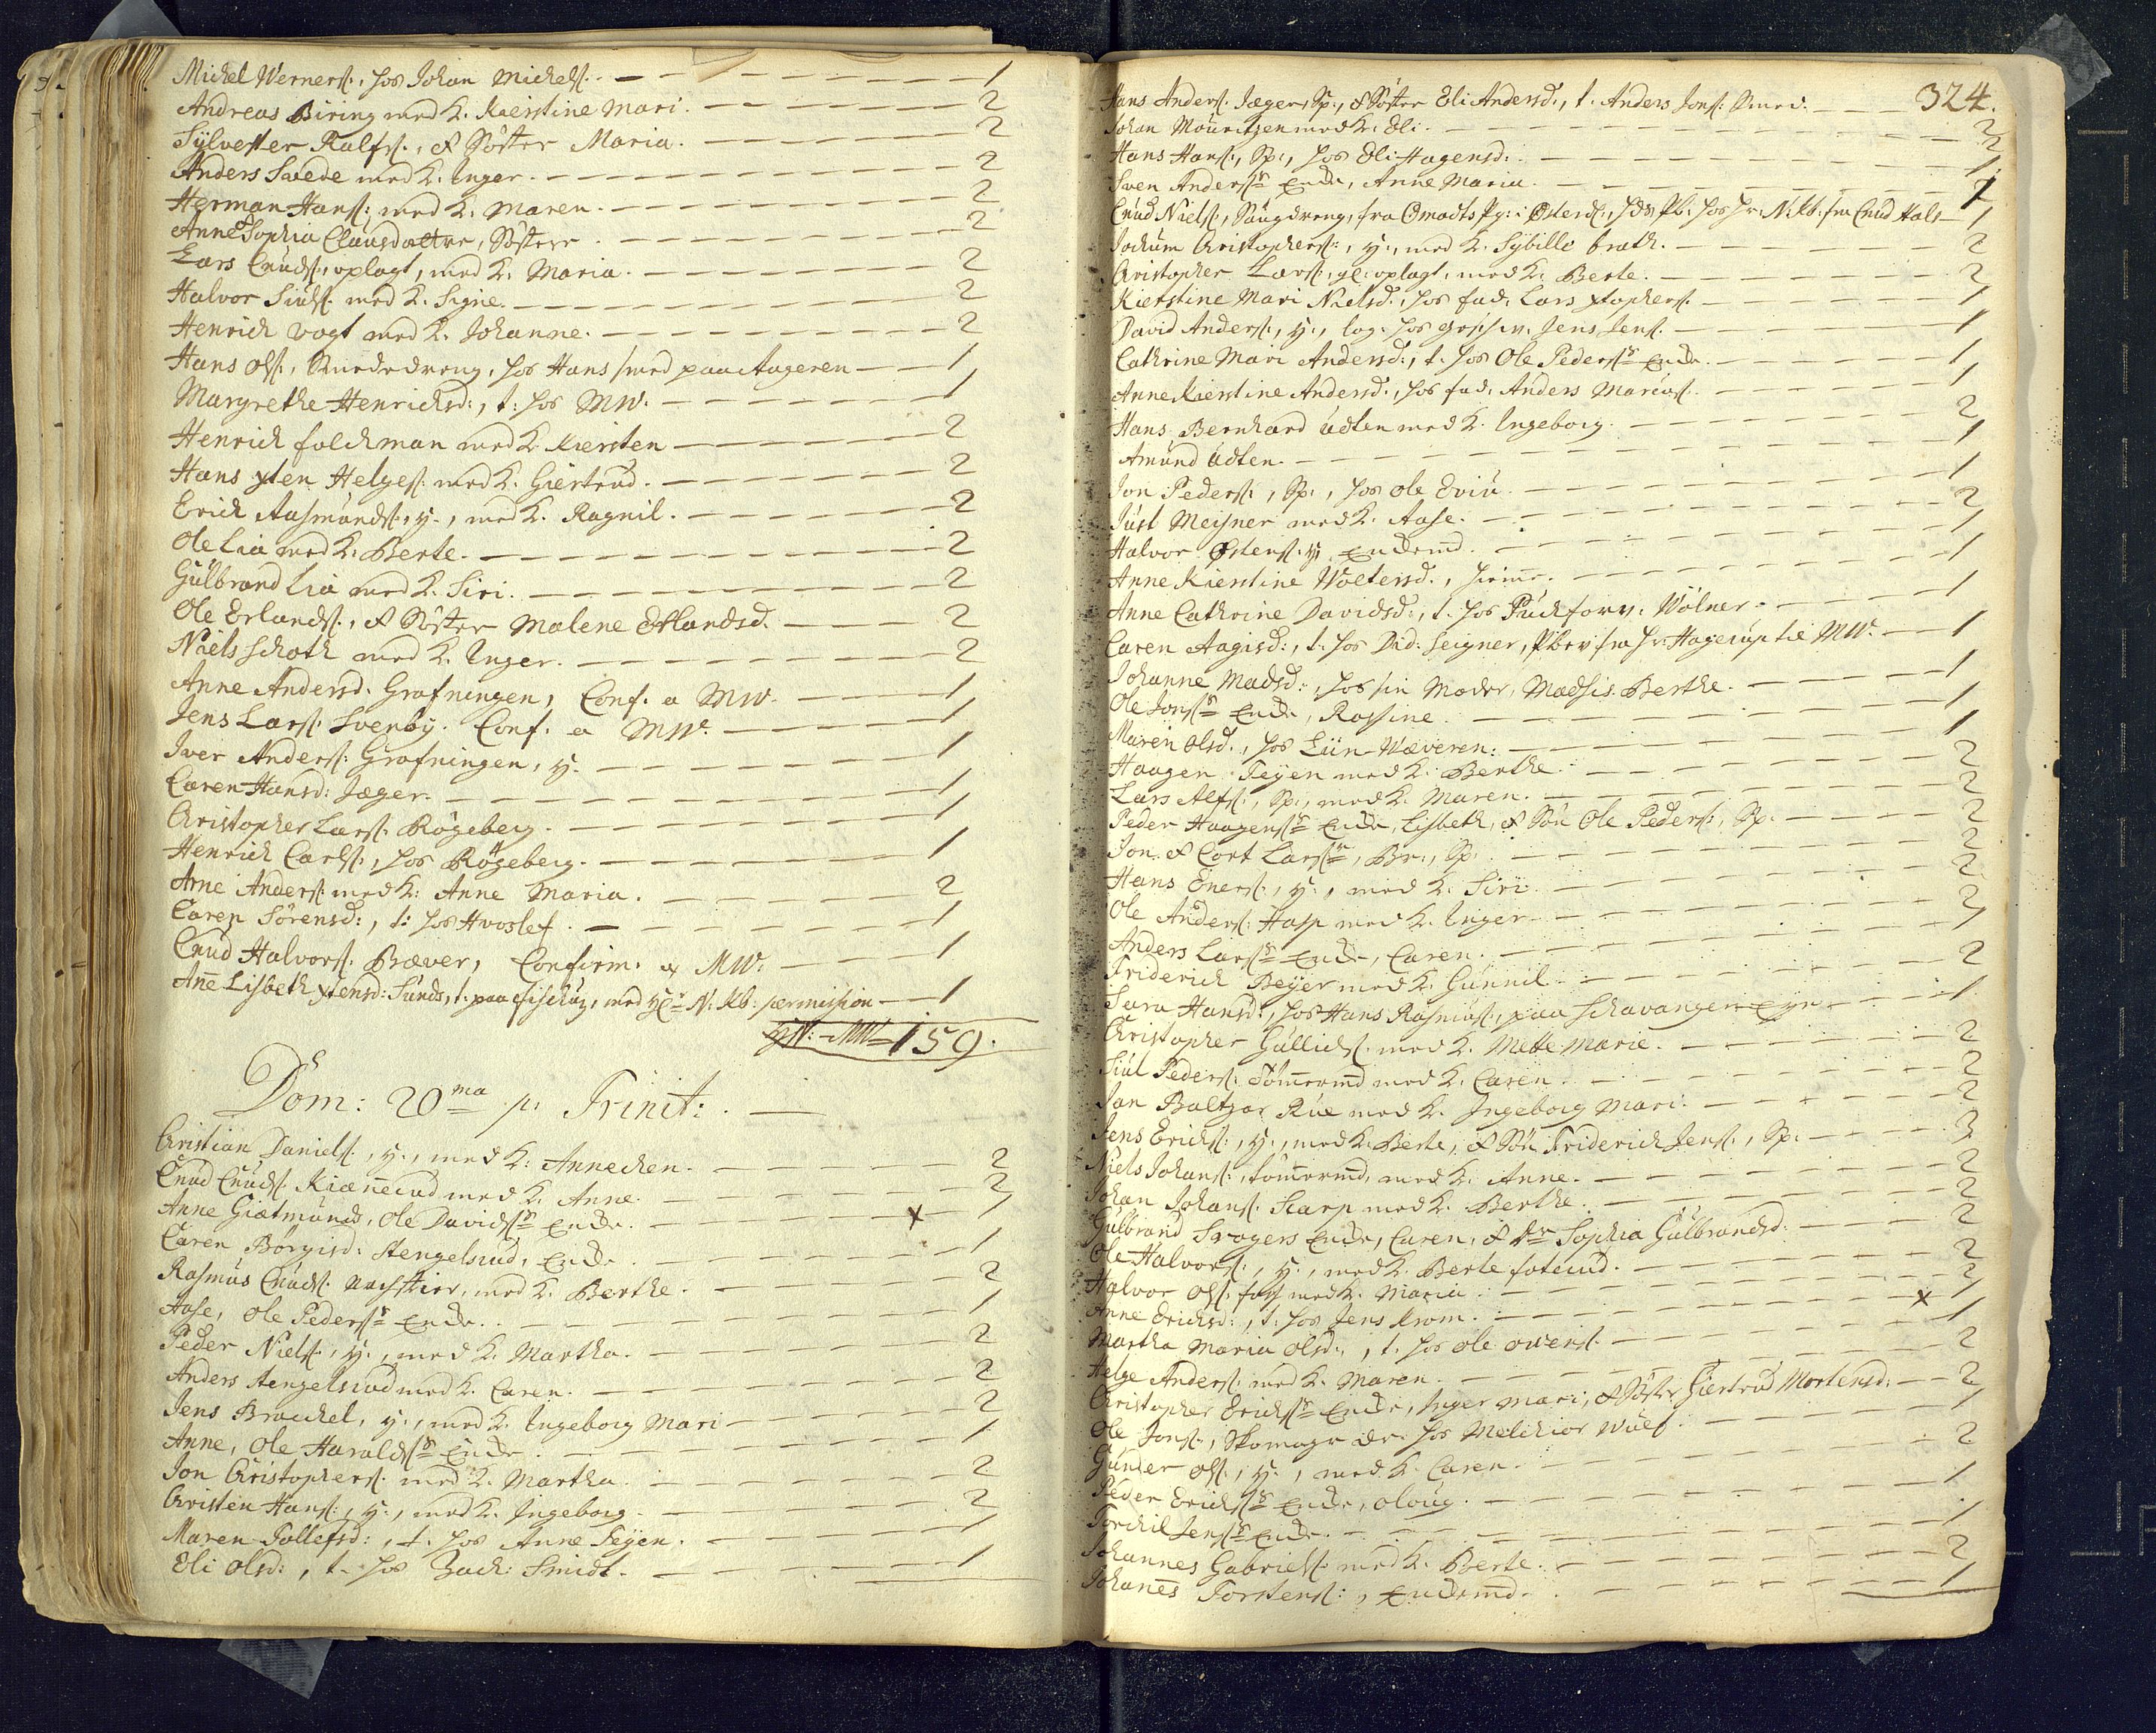 Michel Werners:, hos Johan Michels. — 1
Andreas Biring med K. Kierstine Mari. — 2
Sylvester Ralfs:, & Søster Maria. — 2
Anders Svede med K. Inger. — 2
Herman Hans: med K. Maren. — 2
Anne Sophia Clausdatter, Søster — 2
Lars Cnuds:, oplagt, med K. Maria. — 2
Halvor Siuls: med K. Signe. — 2
Henrich Vogt med K. Johanne. — 2
Hans Ols:, Smededreng, hos Hans smed paa Aageren — 1
Margrethe Henrichsd:, t: hos MW. — 1
Henrich Folchman med K. Kiersten — 2
Hans xten Helges: med K. Giertrud. — 2
Erich Aasmunds:, y., med K. Ragnil. — 2
Ole Lia med K: Berte. — 2
Gulbrand Lia med K. Siri. — 2
Ole Erlands:, & Søster Malene Erlandsd. — 2
Niels Schoth med K. Inger. — 2
Anne Andersd. Grafningen, Conf. a MW. — 1
Jens Lars: Svenby. Conf. a MW. — 1
Iver Anders: Grafningen, y. — 1
Caren Hansd: Jæger. — 1
Christopher Lars: Røgeberg. — 1
Henrich Carls:, hos Røgeberg. — 1
Arne Anders: med K: Anne Maria. — 2
Caren Sørensd:, t: hos Hvoslef. — 1
Cnud Halvors: Bæver, Confirm. a MW: — 1
Añe Lisbeth xtensd: Sunds, t. paa Fischum, med Hr N: Kb: permission — 1
MW 159.
Dom: 20ma p: Trinit: —
Christian Daniels:, y., med K: Annechen. — 2
Cnud Cnuds: Kiæñerud med K. Anne. — 2
Anne Giætmunds, Ole Davidssr Encke. — x 1
Caren Børgisd: Stengelsrud, Encke. — 1
Rasmus Cnuds: Bachstier, med K. Berthe. — 2
Aase, Ole Pederssr Encke. — 1
Peder Niels:, y., med K. Martha. — 2
Anders Stengelsrud med K. Caren. — 2
Jens Bræchel, y., med K. Ingeborg Mari — 2
Anne, Ole Haraldssr Encke. — 1
Jon Christophers: med K. Martha. — 2
Christen Hans:, y., med K. Ingeborg. — 2
Maren Tollefsd:, t. hos Anne Feyen. — 1
Eli Olsd:, t. hos Zach: Smidt. — 1
324.
Hans Anders: Jæger, Sp:, & Søster Eli Andersd:, t. Anders Jons: Smed. — 2
Johan Mouritzen med K. Eli. — 2
Hans Hans:, Sp:, hos Eli Hagensd: — 1
Sven Anderssr Encke, Anne Maria. — 1
Cnud Niels:, Saugdreng, fra Omodts Pg: i Østerd:, hos Hr: N: Kb: fra Cnud Hals — 1
Jochum Christophers:, y., med K. Sybille brath. — 2
Christopher Lars:, gl: oplagt, med K. Berte. — 2
Kierstine Mari Nielsd:, hos fad: Lars xtophers: — 1
David Anders:, y., log. hos Jens Jens: — 1
Cathrine Mari Andersd:, t. hos Ole Pederssr Encke. — 1
Anne Kierstine Andersd:, hos fad: Anders Marcus: — 1
Hans Bernhard Udten med K. Ingeborg. — 2
Amund Udten. — 1
Jon Peders:, Sp:, hos Ole Eviu. — 1
Just Meisner med K. Aase. — 2
Halvor Østens: y. Enckemd. — 1
Anne Kierstine Woltersd:, hieme. — 1
Anne Cathrine Davidsd:, t. hos Puchforv: Wolner — 1
Caren Aagisd:, t. hos Did: Seigner, fra Hr: Hagerup til MW. — 1
Johanne Madsd:, hos sin Moder, Madsis Berthe. — 1
Ole Jonssr Encke, Rossine. — 1
Maren Olsd:, hos Liin-Wæveren: — 1
Haagen Feyen med K. Berthe. — 2
Lars Alfs:, Sp:, med K. Maren. — 2
Peder Haagenssr Encke, Lisbeth, & Søn Ole Peders:, Sp. — 2
Jon & Cort Larssr, Br:, Sp: — 2
Hans Eners:, y:, med K. Siri. — 2
Ole Anders: Hasp med K. Inger — 2
Anders Larssr Encke, Caren. — 1
Friderich Beyer med K. Gunnil. — 2
Sara Hansd:, hos Hans Rasmus:, paa Schavanger Eye — 1
Christopher Gullichs: med K. Mette Marie. — 2
Siul Peders: Tømermd med K. Caren. — 2
Jan Baltzar Rue med K. Ingeborg Mari. — 2
Jens Erichs:, y., med K. Berte, & Søn Friderich Jens:, Sp. — 3
Niels Johans:, tømermd, med K. Anne. — 2
Johan Johans: Scarp med K. Berthe. — 2
Gulbrand Svogers Encke, Caren, & dr Sophia Gulbrandsd: — 2
Ole Halvors:, y., med K. Berte Foterud. — 2
Halvor Ols: Foss med K. Maria. — 2
Anne Erichsd:, t. hos Jens Krom. — x 1
Martha Maria Olsd:, t. hos Ole Owers: — 1
Helge Anders: med K. Maren. — 2
Christopher Erichssr Encke, Inger Mari, & Søster Giertrud Mortensd: — 2
Ole Jons:, Skomager dr: hos Melchior Wulf. — 1
Gunder Ols:, y., med K. Caren. — 2
Peder Erichssr Encke, Oloug. — 1
Torchil Jenssr Encke. — 1
Johannes Gabriels: med K. Berte. — 2
Johanes Torstens:, Enckemd. — 1